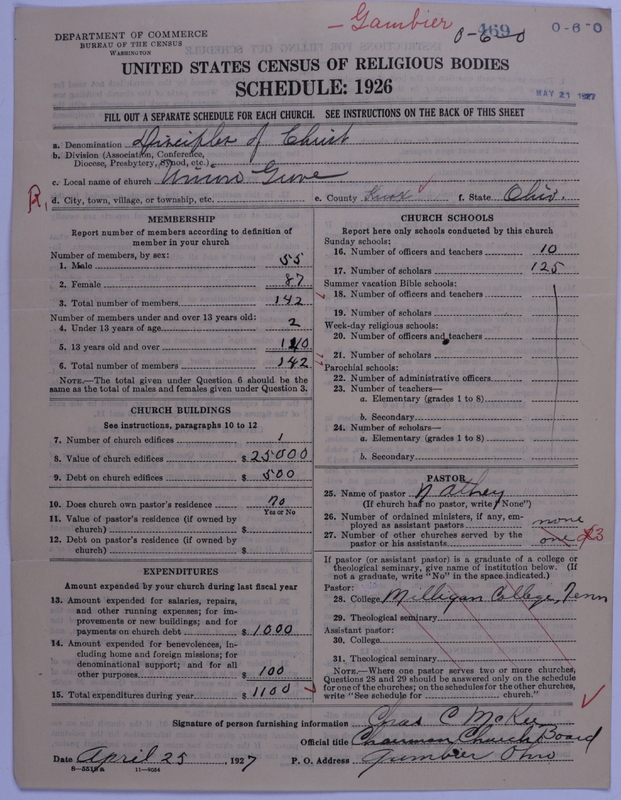 — Gambier
469
0-6-0
0-6-0
DEPARTMENT OF COMMERCE
BUREAU OF THE CENSUS
WASHINGTON
MAY 21 1927
UNITED STATES CENSUS OF RELIGIOUS BODIES
SCHEDULE: 1926
FILL OUT A SEPARATE SCHEDULE FOR EACH CHURCH. SEE INSTRUCTIONS ON THE BACK OF THIS SHEET
a. Denomination Disciples of Christ
b. Division (Association, Conference, Diocese, Presbytery, Synod, etc.)
c. Local name of church Union Grove
R
d. City, town, village, or township, etc. e. County Knox ✓ f. State Ohio.
MEMBERSHIP
Report number of members according to definition of
member in your church
Number of members, by sex:
1. Male 55
2. Female 87
3. Total number of members 142
Number of members under and over 13 years old:
4. Under 13 years of age 2
5. 13 years old and over 140
6. Total number of members 142
NOTE.—The total given under Question 6 should be the
same as the total of males and females given under Question 3.
CHURCH BUILDINGS
See instructions, paragraphs 10 to 12
7. Number of church edifices 1
8. Value of church edifices $ 25000
9. Debt on church edifices $ 500
10. Does church own pastor's residence no
Yes or No
11. Value of pastor's residence (if owned by
church) $
12. Debt on pastor's residence (if owned by
church) $
EXPENDITURES
Amount expended by your church during last fiscal year
13. Amount expended for salaries, repairs,
and other running expenses; for im-
provements or new buildings; and for
payments on church debt $ 1000
14. Amount expended for benevolences, in-
cluding home and foreign missions; for
denominational support; and for all
other purposes $ 100
15. Total expenditures during year $ 1100
CHURCH SCHOOLS
Report here only schools conducted by this church
Sunday schools:
16. Number of officers and teachers 10
17. Number of scholars 125
Summer vacation Bible schools:
18. Number of officers and teachers
19. Number of scholars
Week-day religious schools:
20. Number of officers and teachers
21. Number of scholars
Parochial schools:
22. Number of administrative officers
23. Number of teachers—
a. Elementary (grades 1 to 8)
b. Secondary
24. Number of scholars—
a. Elementary (grades 1 to 8)
b. Secondary
PASTOR
25. Name of pastor
(If church has no pastor, write "None")
26. Number of ordained ministers, if any, em-
ployed as assistant pastors none
27. Number of other churches served by the
pastor or his assistants one 3
If pastor (or assistant pastor) is a graduate of a college or
theological seminary, give name of institution below. (If
not a graduate, write "No" in the space indicated.)
Pastor:
28. College Milligan College, Tenn
29. Theological seminary
Assistant pastor:
30. College
31. Theological seminary
NOTE.—Where one pastor serves two or more churches,
Questions 28 and 29 should be answered only on the schedule
for one of the churches; on the schedules for the other churches,
write "See schedule for church."
Signature of person furnishing information Chas C McKee
Official title Chairman Church Board
Date April 25, 1927 P. O. Address Gambier Ohio
8—5518a 11—8054